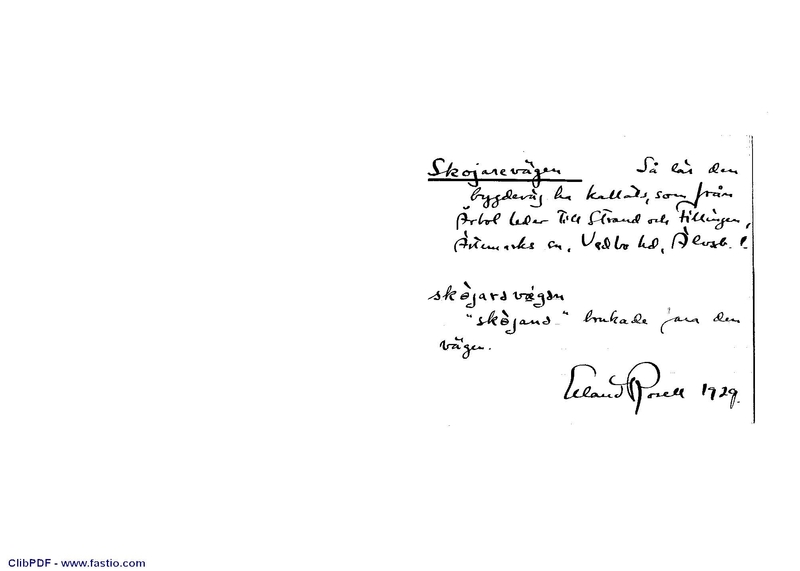 Skojarevägen Så lär den
bygdeväg ha kallats, som från
Ärbol leder till Strand och Tillingen,
Ärtemarks sn, Vedbo hd, Älvsb. l.
skòjaravägan
"skòjana" brukade fara den
vägen.
Erland Rosell 1929.
ClibPDF - www.fastio.com